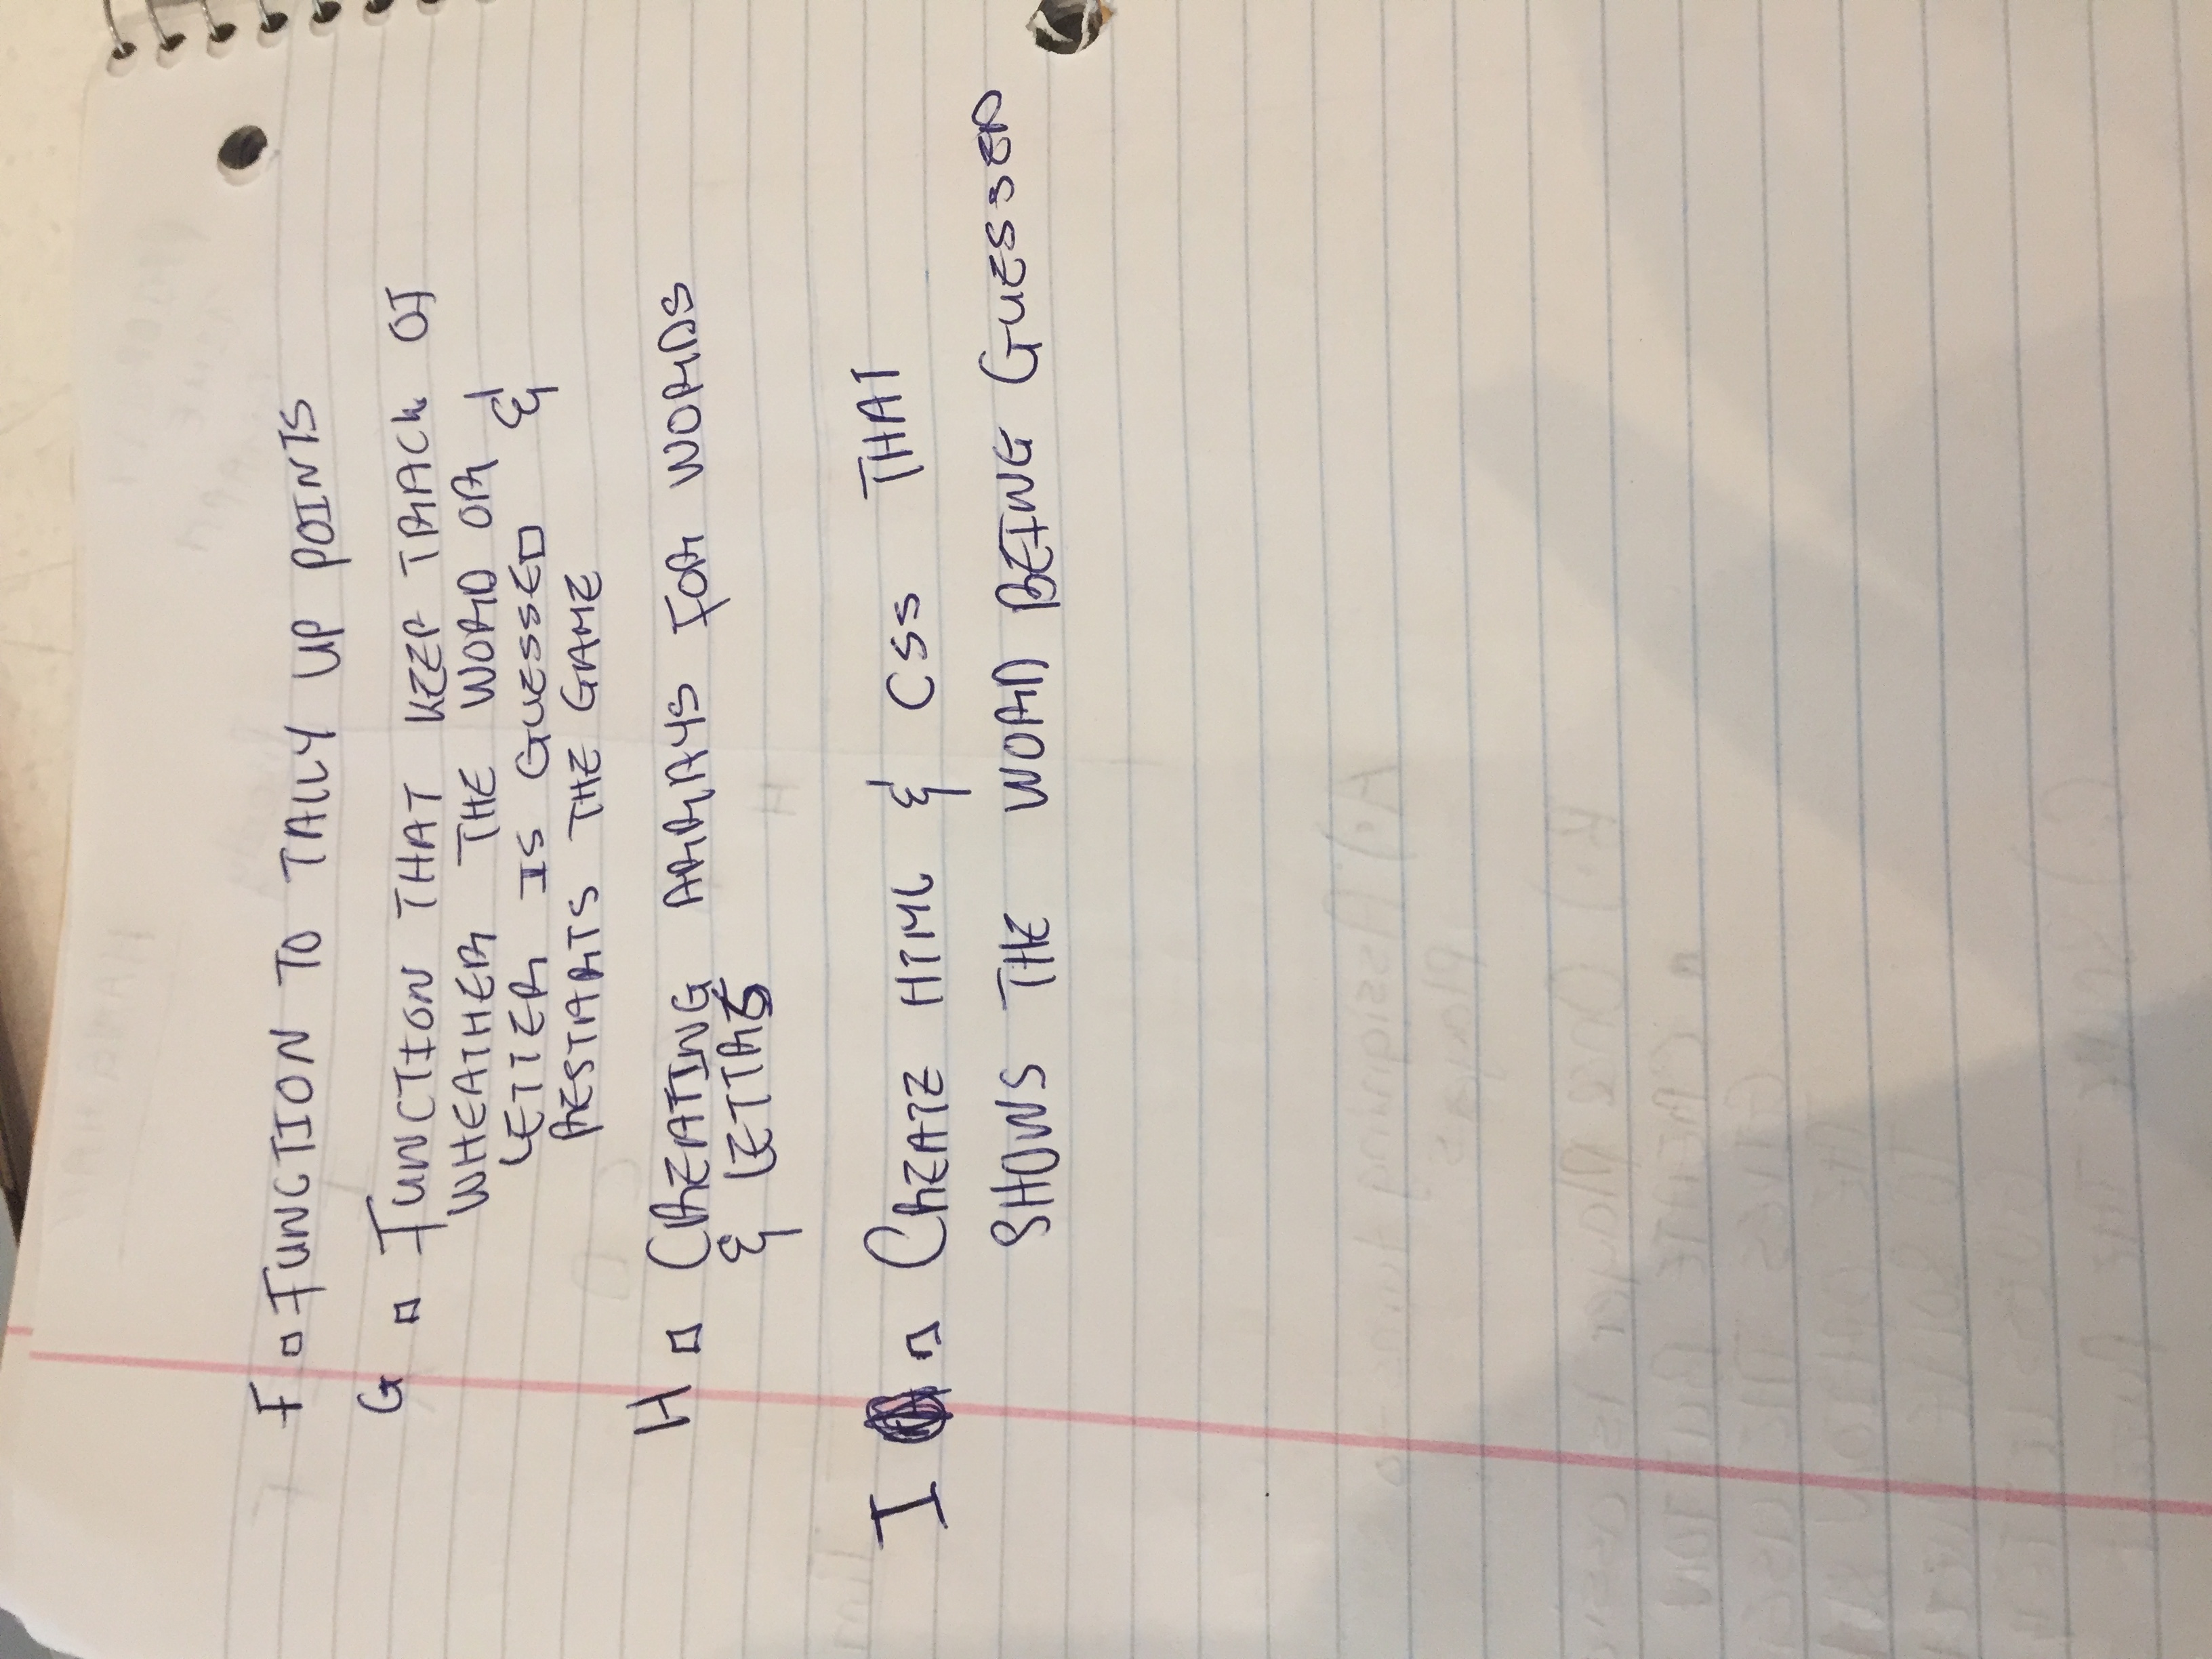 F □ FUNCTION TO TALLY UP POINTS
G □ FUNCTION THAT KEEP TRACK OF
WHEATHER THE WORD OR
LETTER IS GUESSED &
RESTARTS THE GAME
H □ CREATING ARRAYS FOR WORDS
& LETTRS
I □ CREATE HTML & CSS THAT
SHOWS THE WORD BEING GUESSED